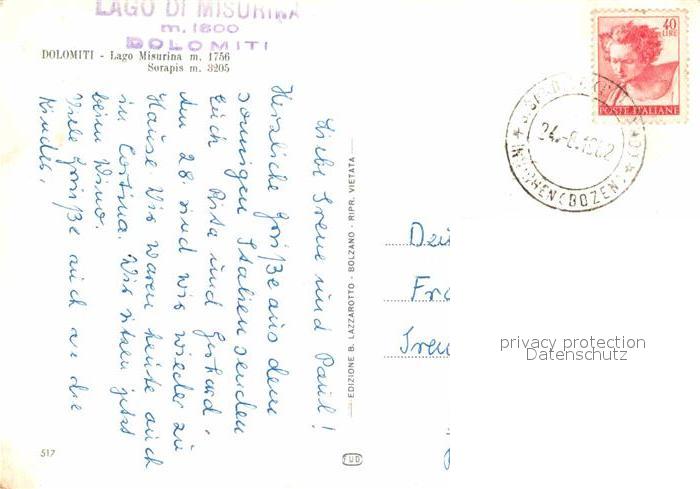 LAGO DI MISURINA
m. 1800
DOLOMITI
DOLOMITI - Lago Misurina m. 1756
Sorapis m. 3205
40
LIRE
POSTE ITALIANE
24.-8.1962
INNICHEN (BOZEN)
Liebe Irene und Paul!
Herzliche Grüße aus dem
sonnigen Italien senden
Euch Rita und Gerhard.
Am 28. sind wir wieder zu
Hause. Wir waren heute auch
in Cortina. Wir sitzen jetzt
beim Wino.
Viele Grüße auch an die
Kinder.
EDIZIONE B. LAZZAROTTO - BOLZANO - RIPR. VIETATA
Fra
Iren
privacy protection
Datenschutz
517